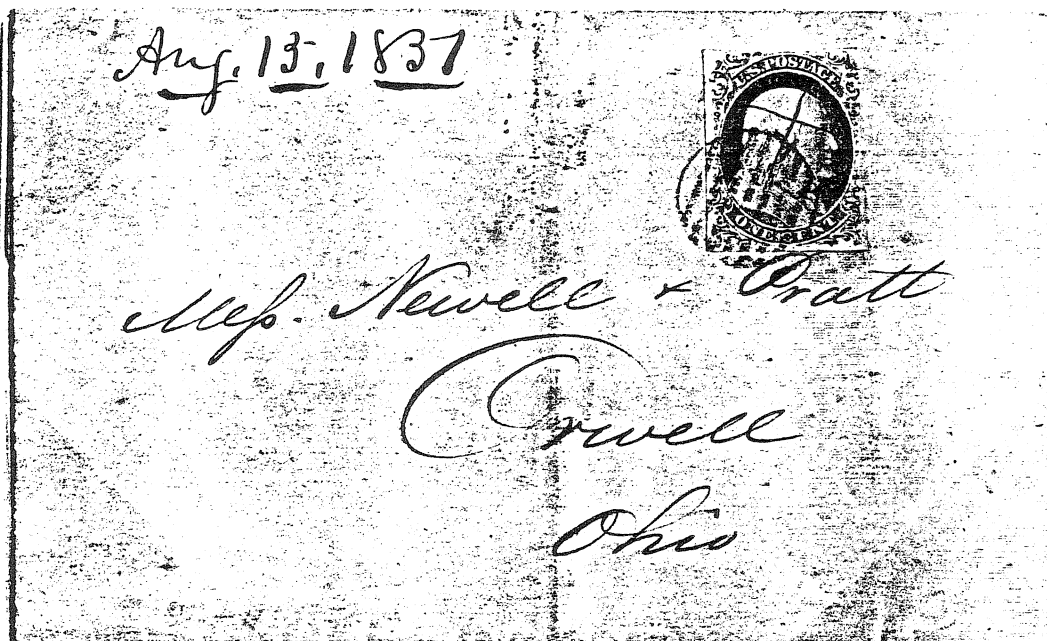 Aug. 15, 1857
U.S. POSTAGE
ONE CENT
Mess. Newell & Pratt
Orwell
Ohio